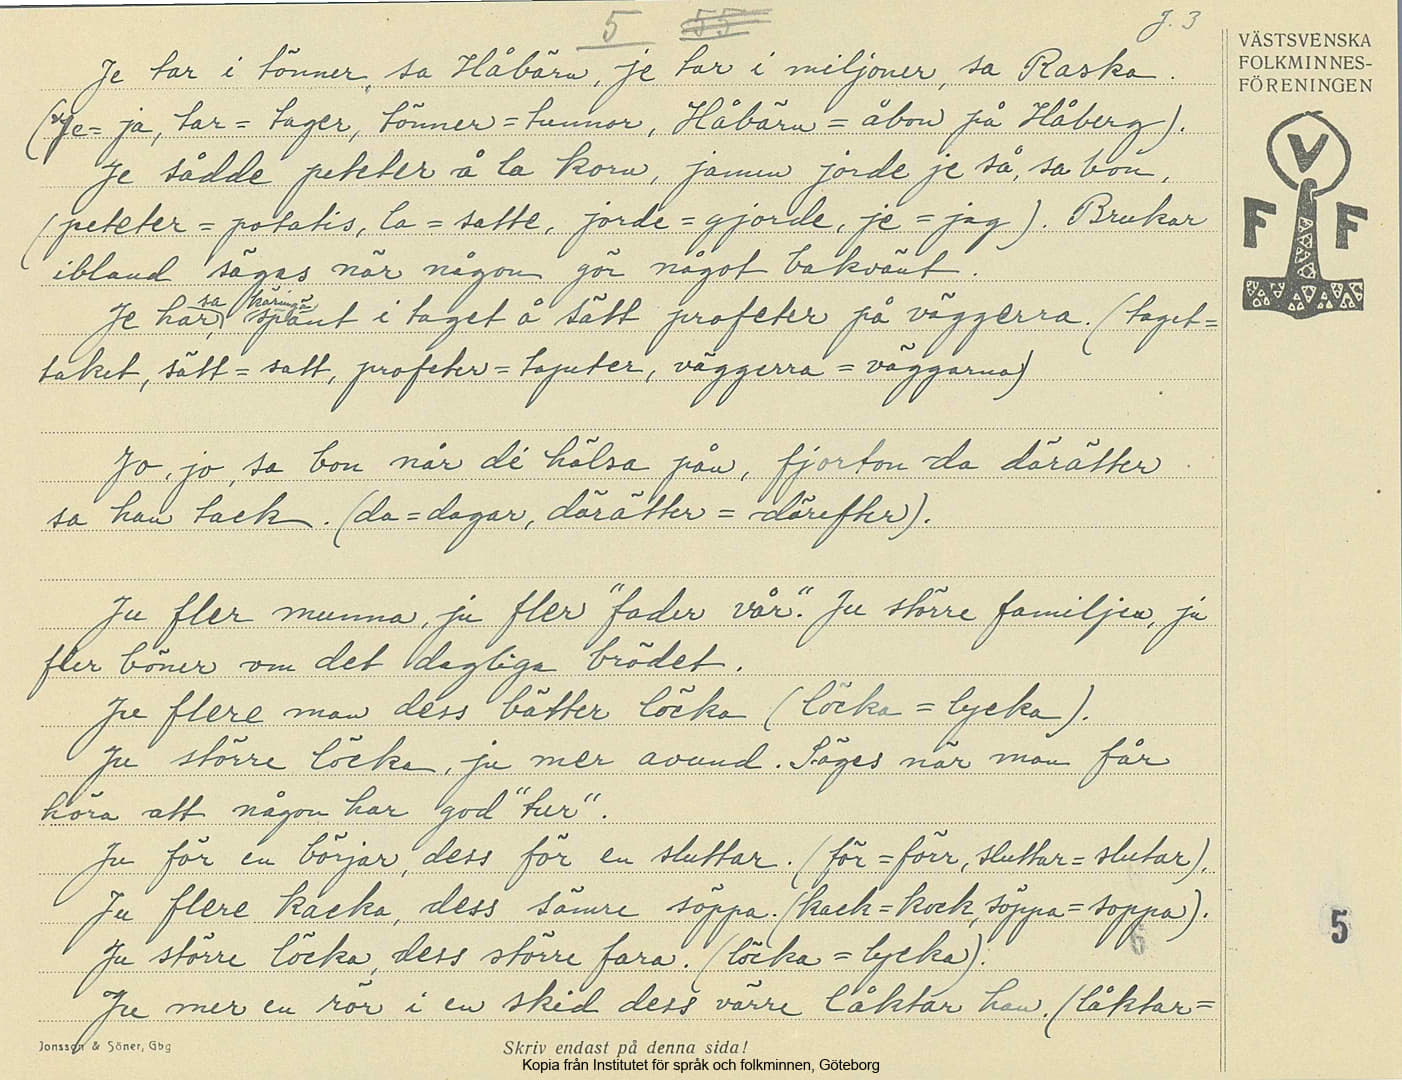 5 55 J. 3
Je tar i tönner, sa Håbärn, je tar i miljoner, sa Raska.
(Je = ja, tar = tager, tönner = tunnor, Håbärn = åbon på Håberg).
Je sådde peteter å la korn, jamen jorde je så, sa bon,
(peteter = potatis, la = satte, jorde = gjorde, je = jag). Brukar
ibland sägas när någon gör något bakvänt.
Je har, sa käringa, spänt i taget å sätt profeter på väggerra. (taget =
taket, sätt = satt, profeter = tapeter, väggerra = väggarna)
Jo, jo, sa bon når dé hälsa pån, fjorton da därätter
sa han tack. (da = dagar, därätter = därefter).
Ju fler munna, ju fler "fader vår". Ju större familjen, ju
fler böner om det dagliga brödet.
Ju flere man dess bätter löcka (löcka = lycka).
Ju större löcka, ju mer avund. Säges när man får
höra att någon har god "tur".
Ju för en börjar, dess för en sluttar. (för = förr, sluttar = slutar).
Ju flere kacka, dess sämre söppa. (kack = kock, söppa = soppa).
Ju större löcka, dess större fara. (löcka = lycka).
Ju mer en rör i en skid dess värre låktar han. (låktar =
VÄSTSVENSKA
FOLKMINNES-
FÖRENINGEN
V
F F
5
Jonsson & Söner, Gbg
Skriv endast på denna sida!
Kopia från Institutet för språk och folkminnen, Göteborg